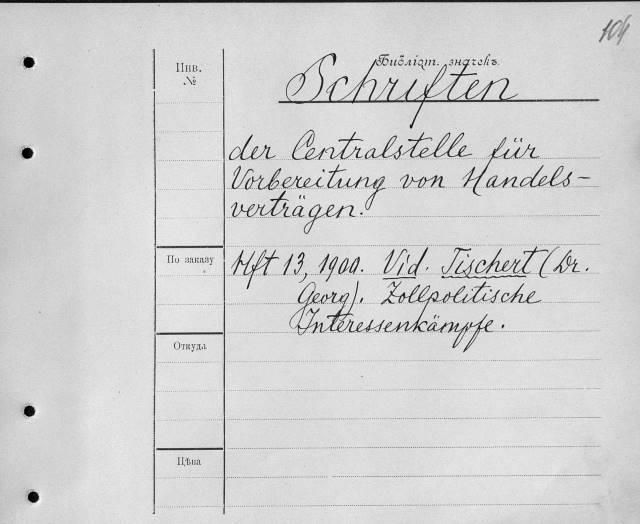 104
Библіот. значекъ.
Инв.
№
Schriften
der Centralstelle für
Vorbereitung von Handels-
verträgen.
По заказу
Hft 13, 1900. Vid. Tischert (Dr.
Georg). Zollpolitische
Interessenkämpfe.
Откуда
Цѣна